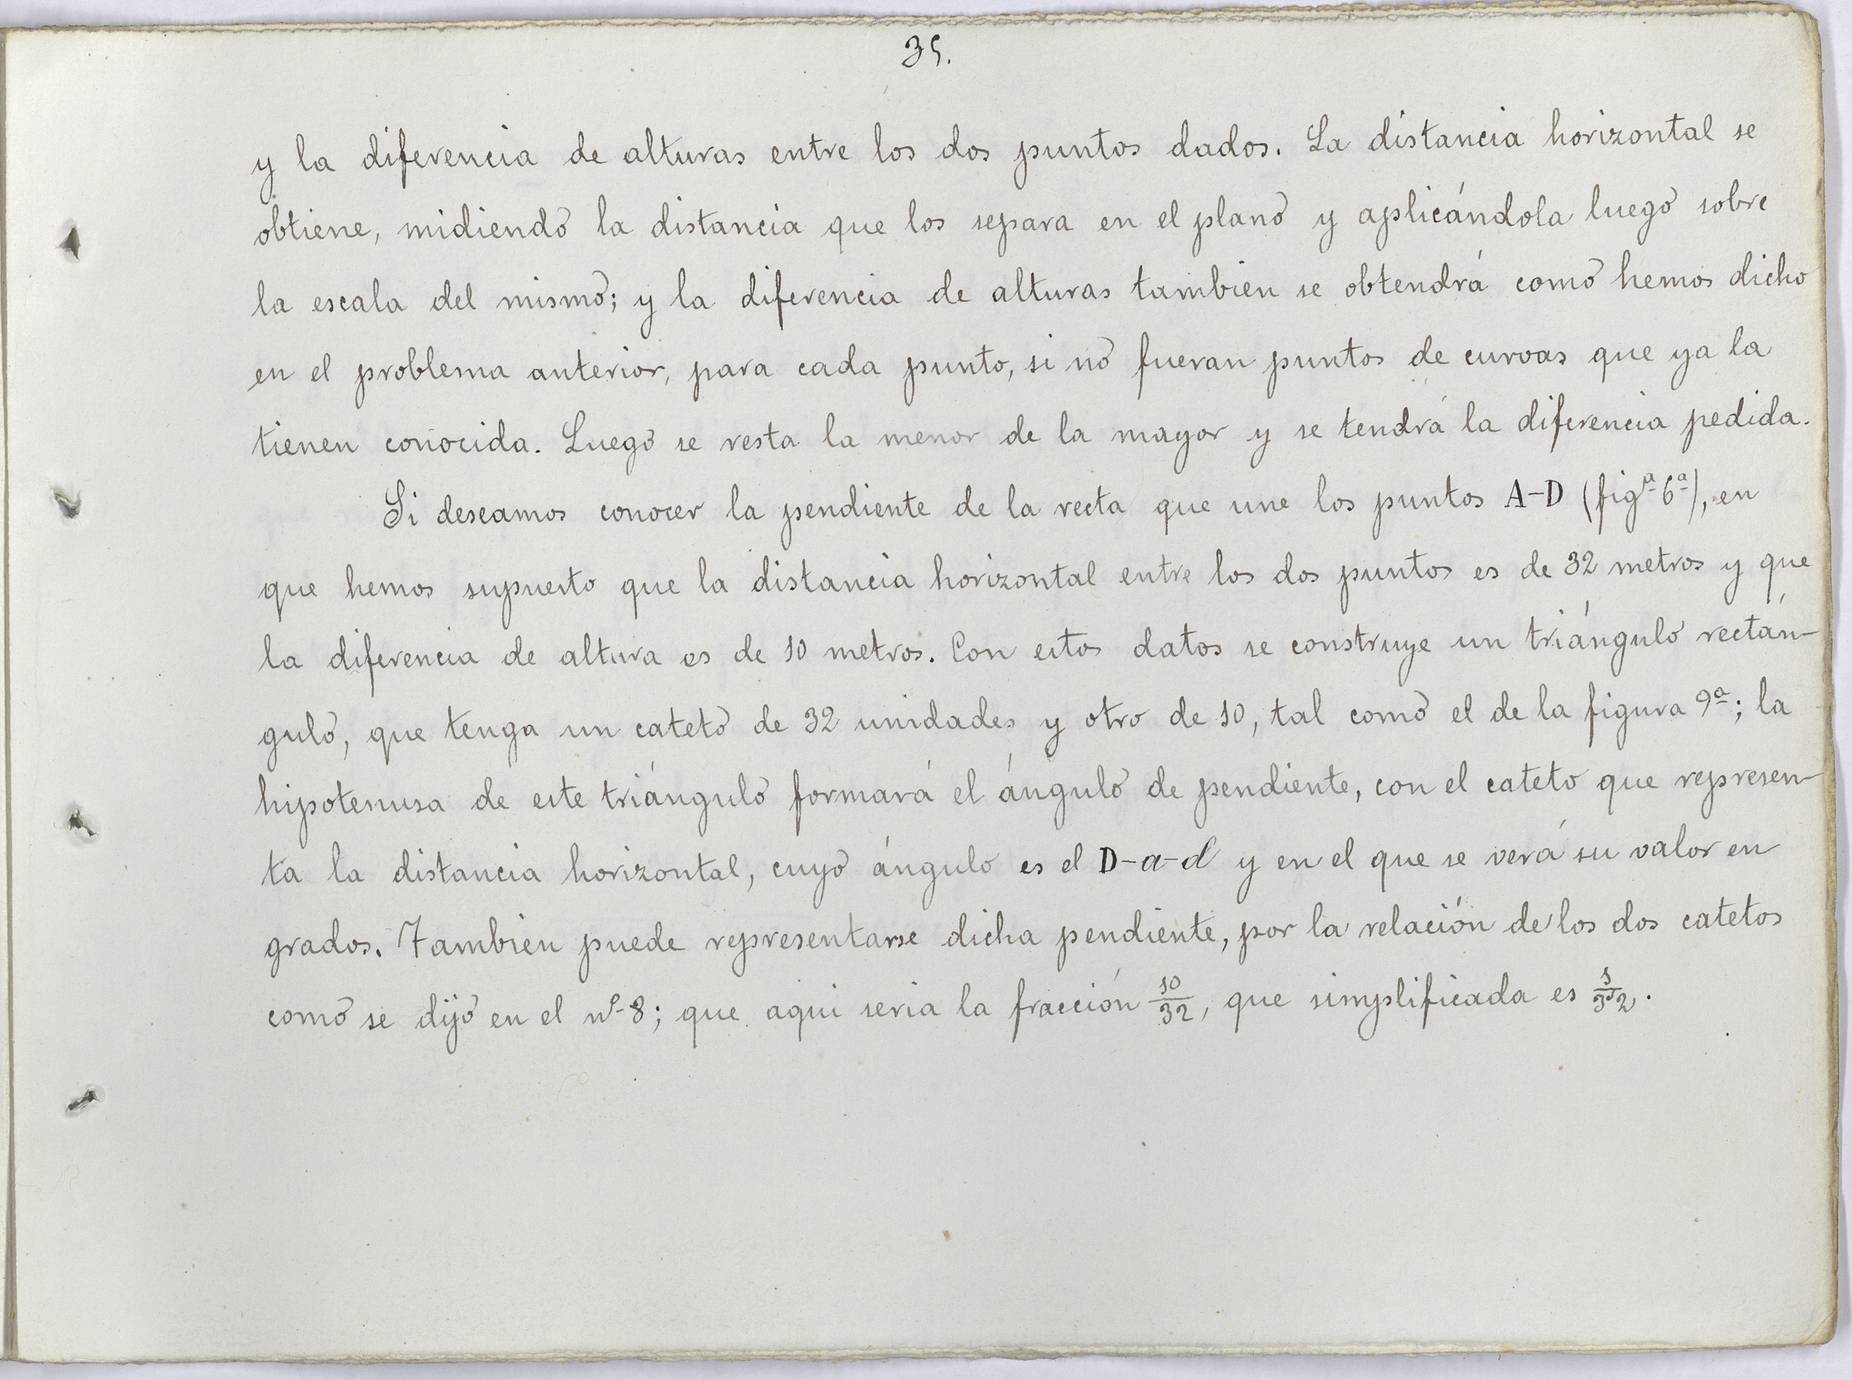 35.
y la diferencia de alturas entre los dos puntos dados. La distancia horizontal se
obtiene, midiendo la distancia que los separa en el plano y aplicándola luego sobre
la escala del mismo; y la diferencia de alturas tambien se obtendrá como hemos dicho
en el problema anterior, para cada punto, si no fueran puntos de curvas que ya la
tienen conocida. Luego se resta la menor de la mayor y se tendrá la diferencia pedida.
Si deseamos conocer la pendiente de la recta que une los puntos A-D (figª 6ª), en
que hemos supuesto que la distancia horizontal entre los dos puntos es de 32 metros y que
la diferencia de altura es de 10 metros. Con estos datos se construye un triángulo rectán-
gulo, que tenga un cateto de 32 unidades y otro de 10, tal como el de la figura 9ª; la
hipotenusa de este triángulo formará el ángulo de pendiente, con el cateto que represen-
ta la distancia horizontal, cuyo ángulo es el D-a-d y en el que se verá su valor en
grados. Tambien puede representarse dicha pendiente, por la relación de los dos catetos
como se dijo en el nº 8; que aqui seria la fracción 10/32, que simplificada es 1/3'2.